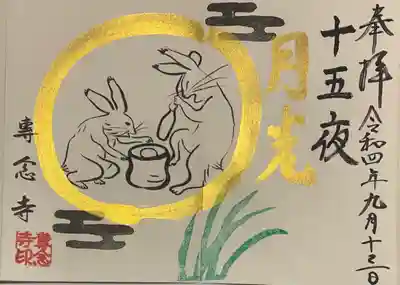 奉拝
令和四年九月十三日
十五夜
月光
專念寺
專念寺印